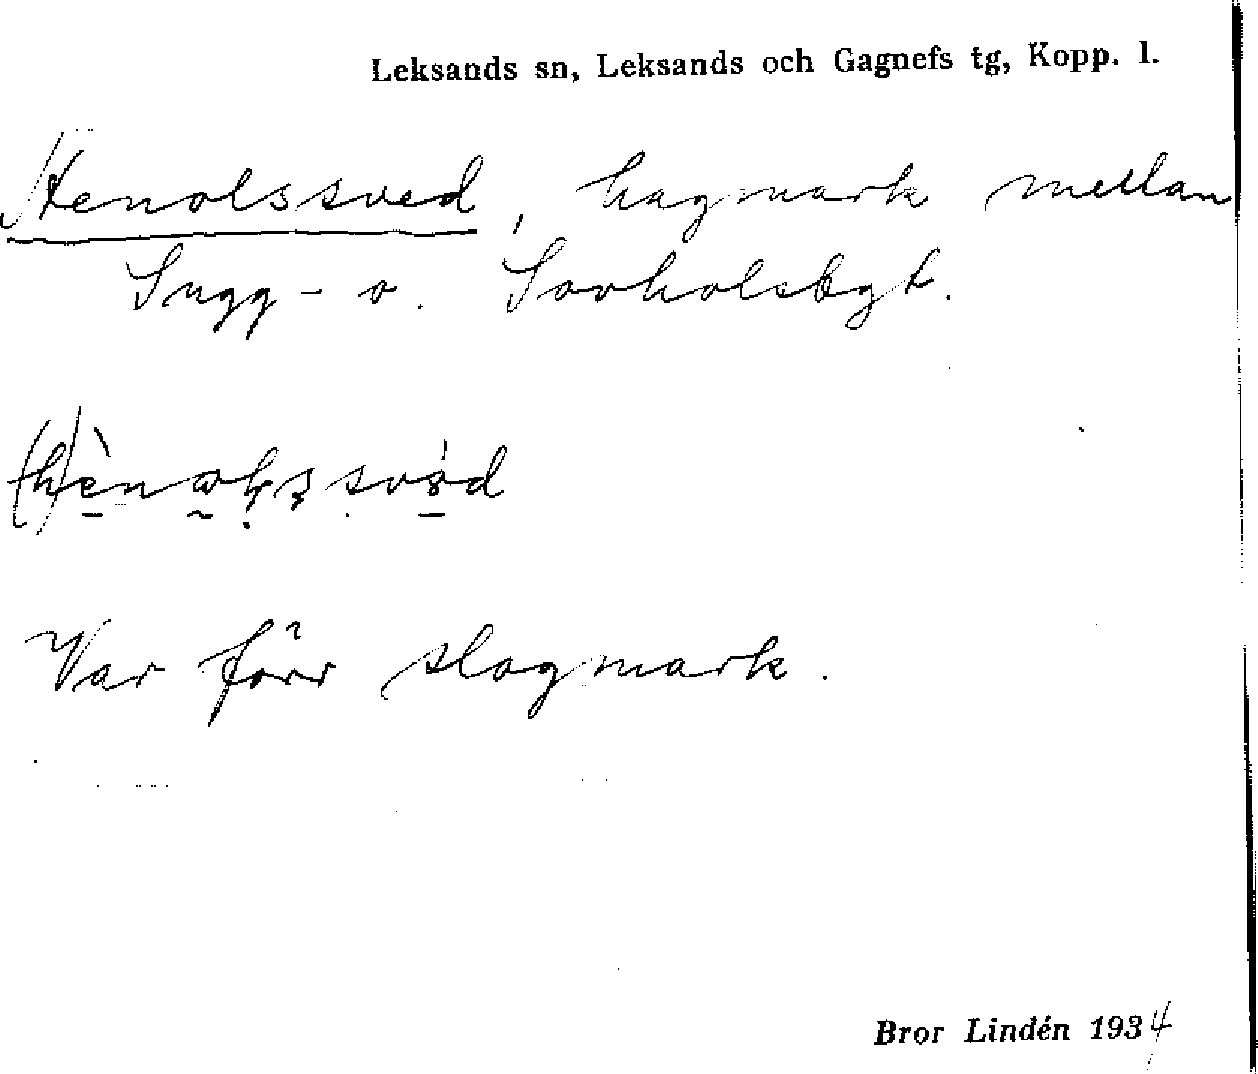 Leksands sn, Leksands och Gagnefs tg, Kopp. l.
Henolssved, hagmark mellan
Sugg- o. Sovholsbgt.
Var förr slogmark.
Bror Lindén 1934